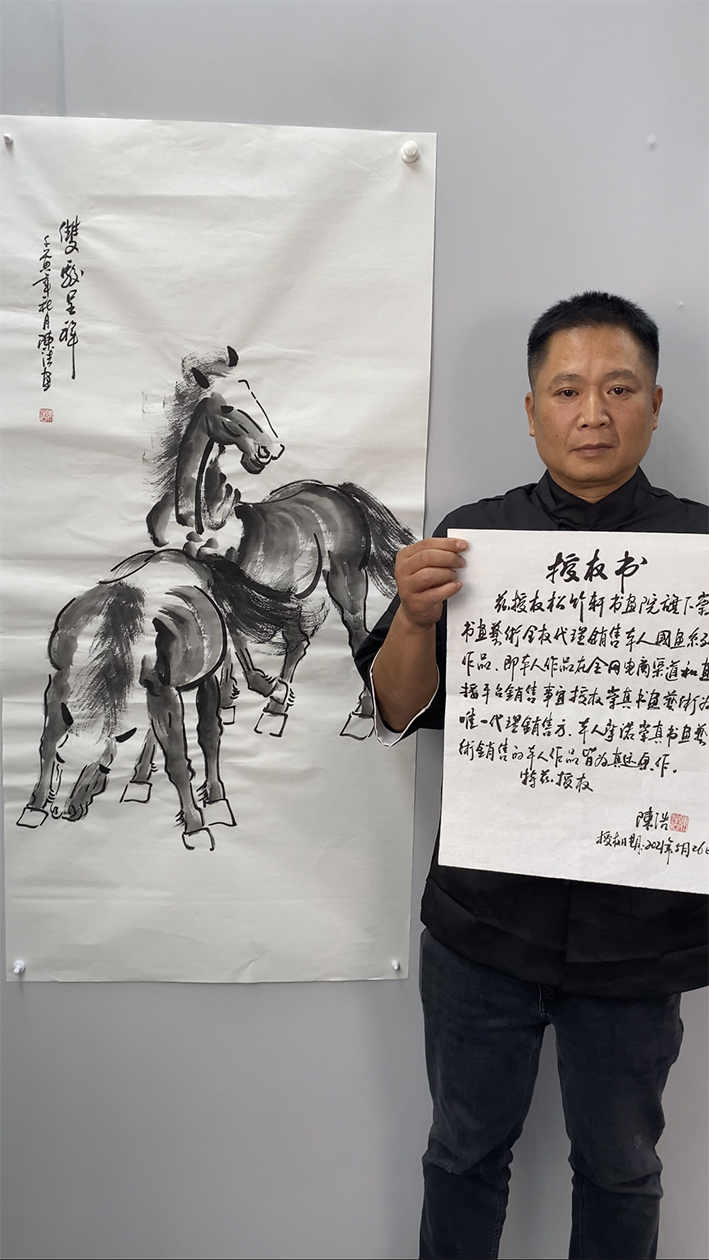 雙駿呈祥
壬寅年秋月陳浩畫
授权书
兹授权松竹轩书画院旗下崇
书画藝術全权代理銷售本人國画系
作品、即本人作品在全网电商渠道和直
播平台銷售事宜授权崇真书画藝術为
唯一代理銷售方、本人承诺崇真书画藝
術銷售的本人作品皆为真迹原作。
特兹授权
陳浩
授权日期:2021年5月26